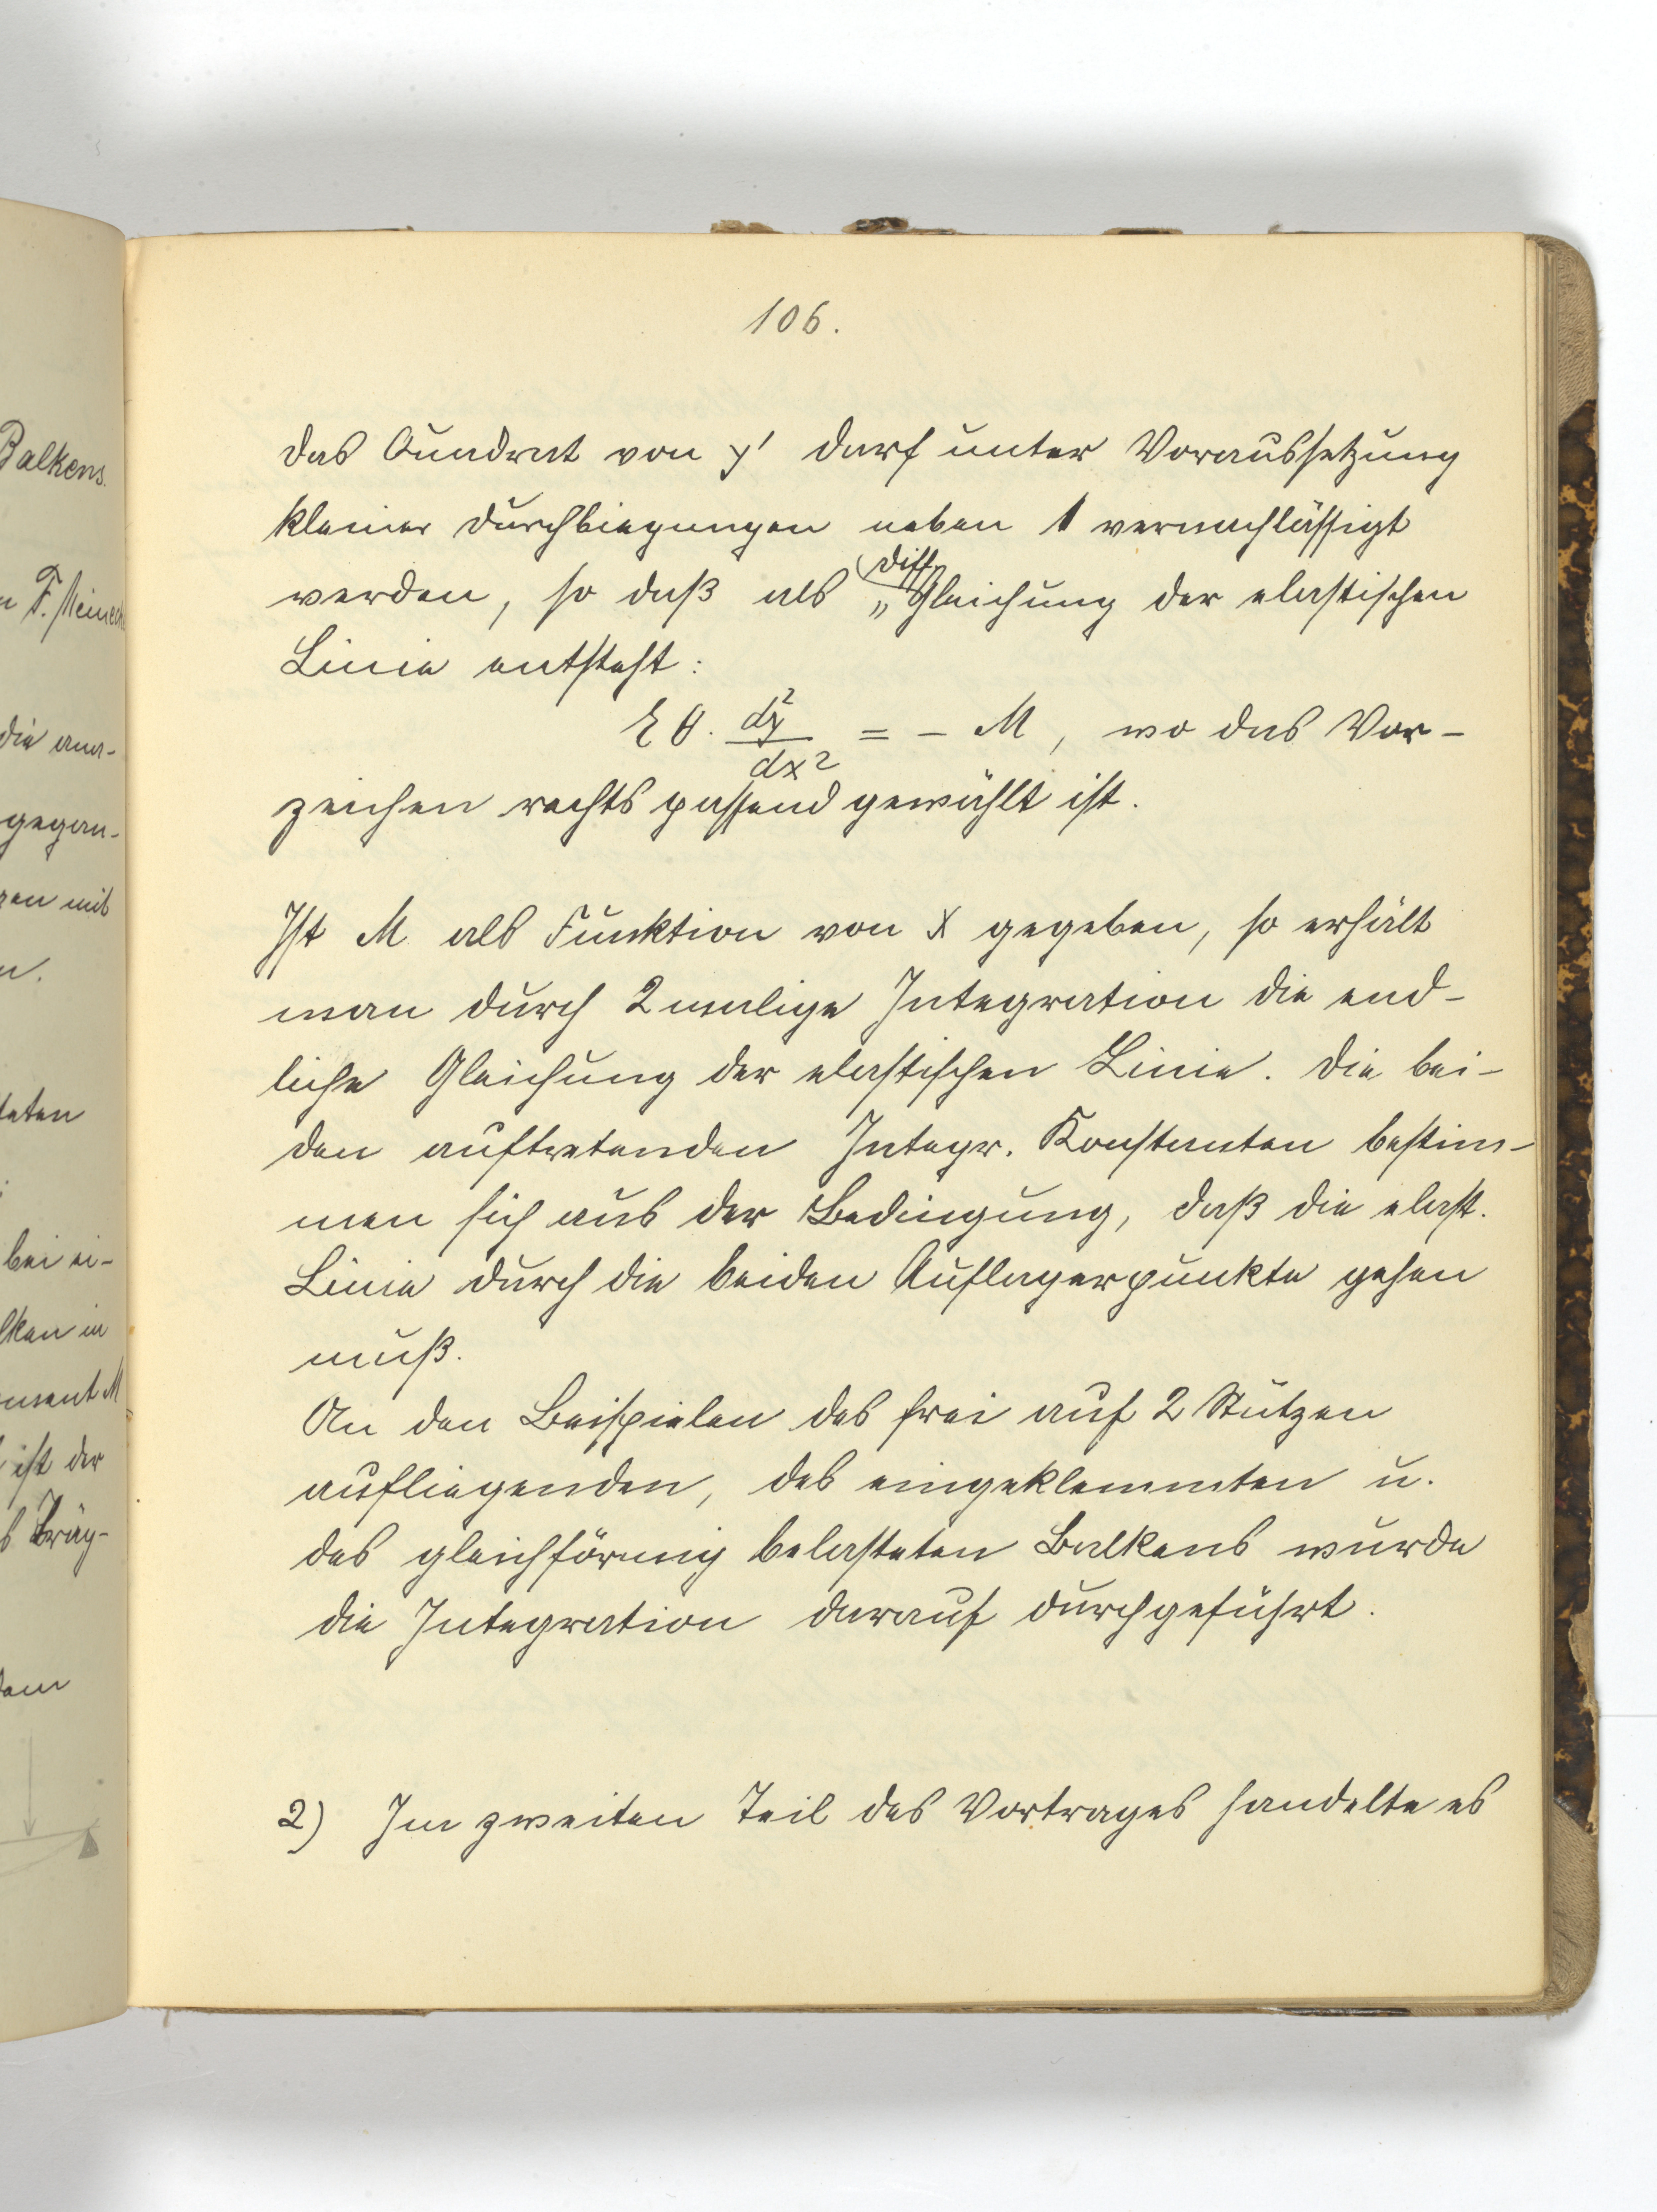 106.
Das Quadrat von y' darf unter Voraussetzung
kleiner Durchbiegungen neben 1 vernachlässigt
werden, so daß als (Diff.) „Gleichung der elastischen
Linie entsteht:
E θ. d²y/dx² = - M, wo das Vor-
zeichen rechts passend gewählt ist.
Ist M als Funktion von x gegeben, so erhält
man durch 2malige Integration die end-
liche Gleichung der elastischen Linie. Die bei-
den auftretenden Integr. Konstanten bestim-
men sich aus der Bedingung, daß die elast.
Linie durch die beiden Auflagerpunkte gehen
muß.
An den Beispielen des frei auf 2 Stützen
aufliegenden, des eingeklemmten u.
des gleichförmig belasteten Balkens wurde
die Integration darauf durchgeführt.
2) Im zweiten Teil des Vortrages handelte es
Balkens.
F.
die
gegan-
mit
bei ei-
M
ist der